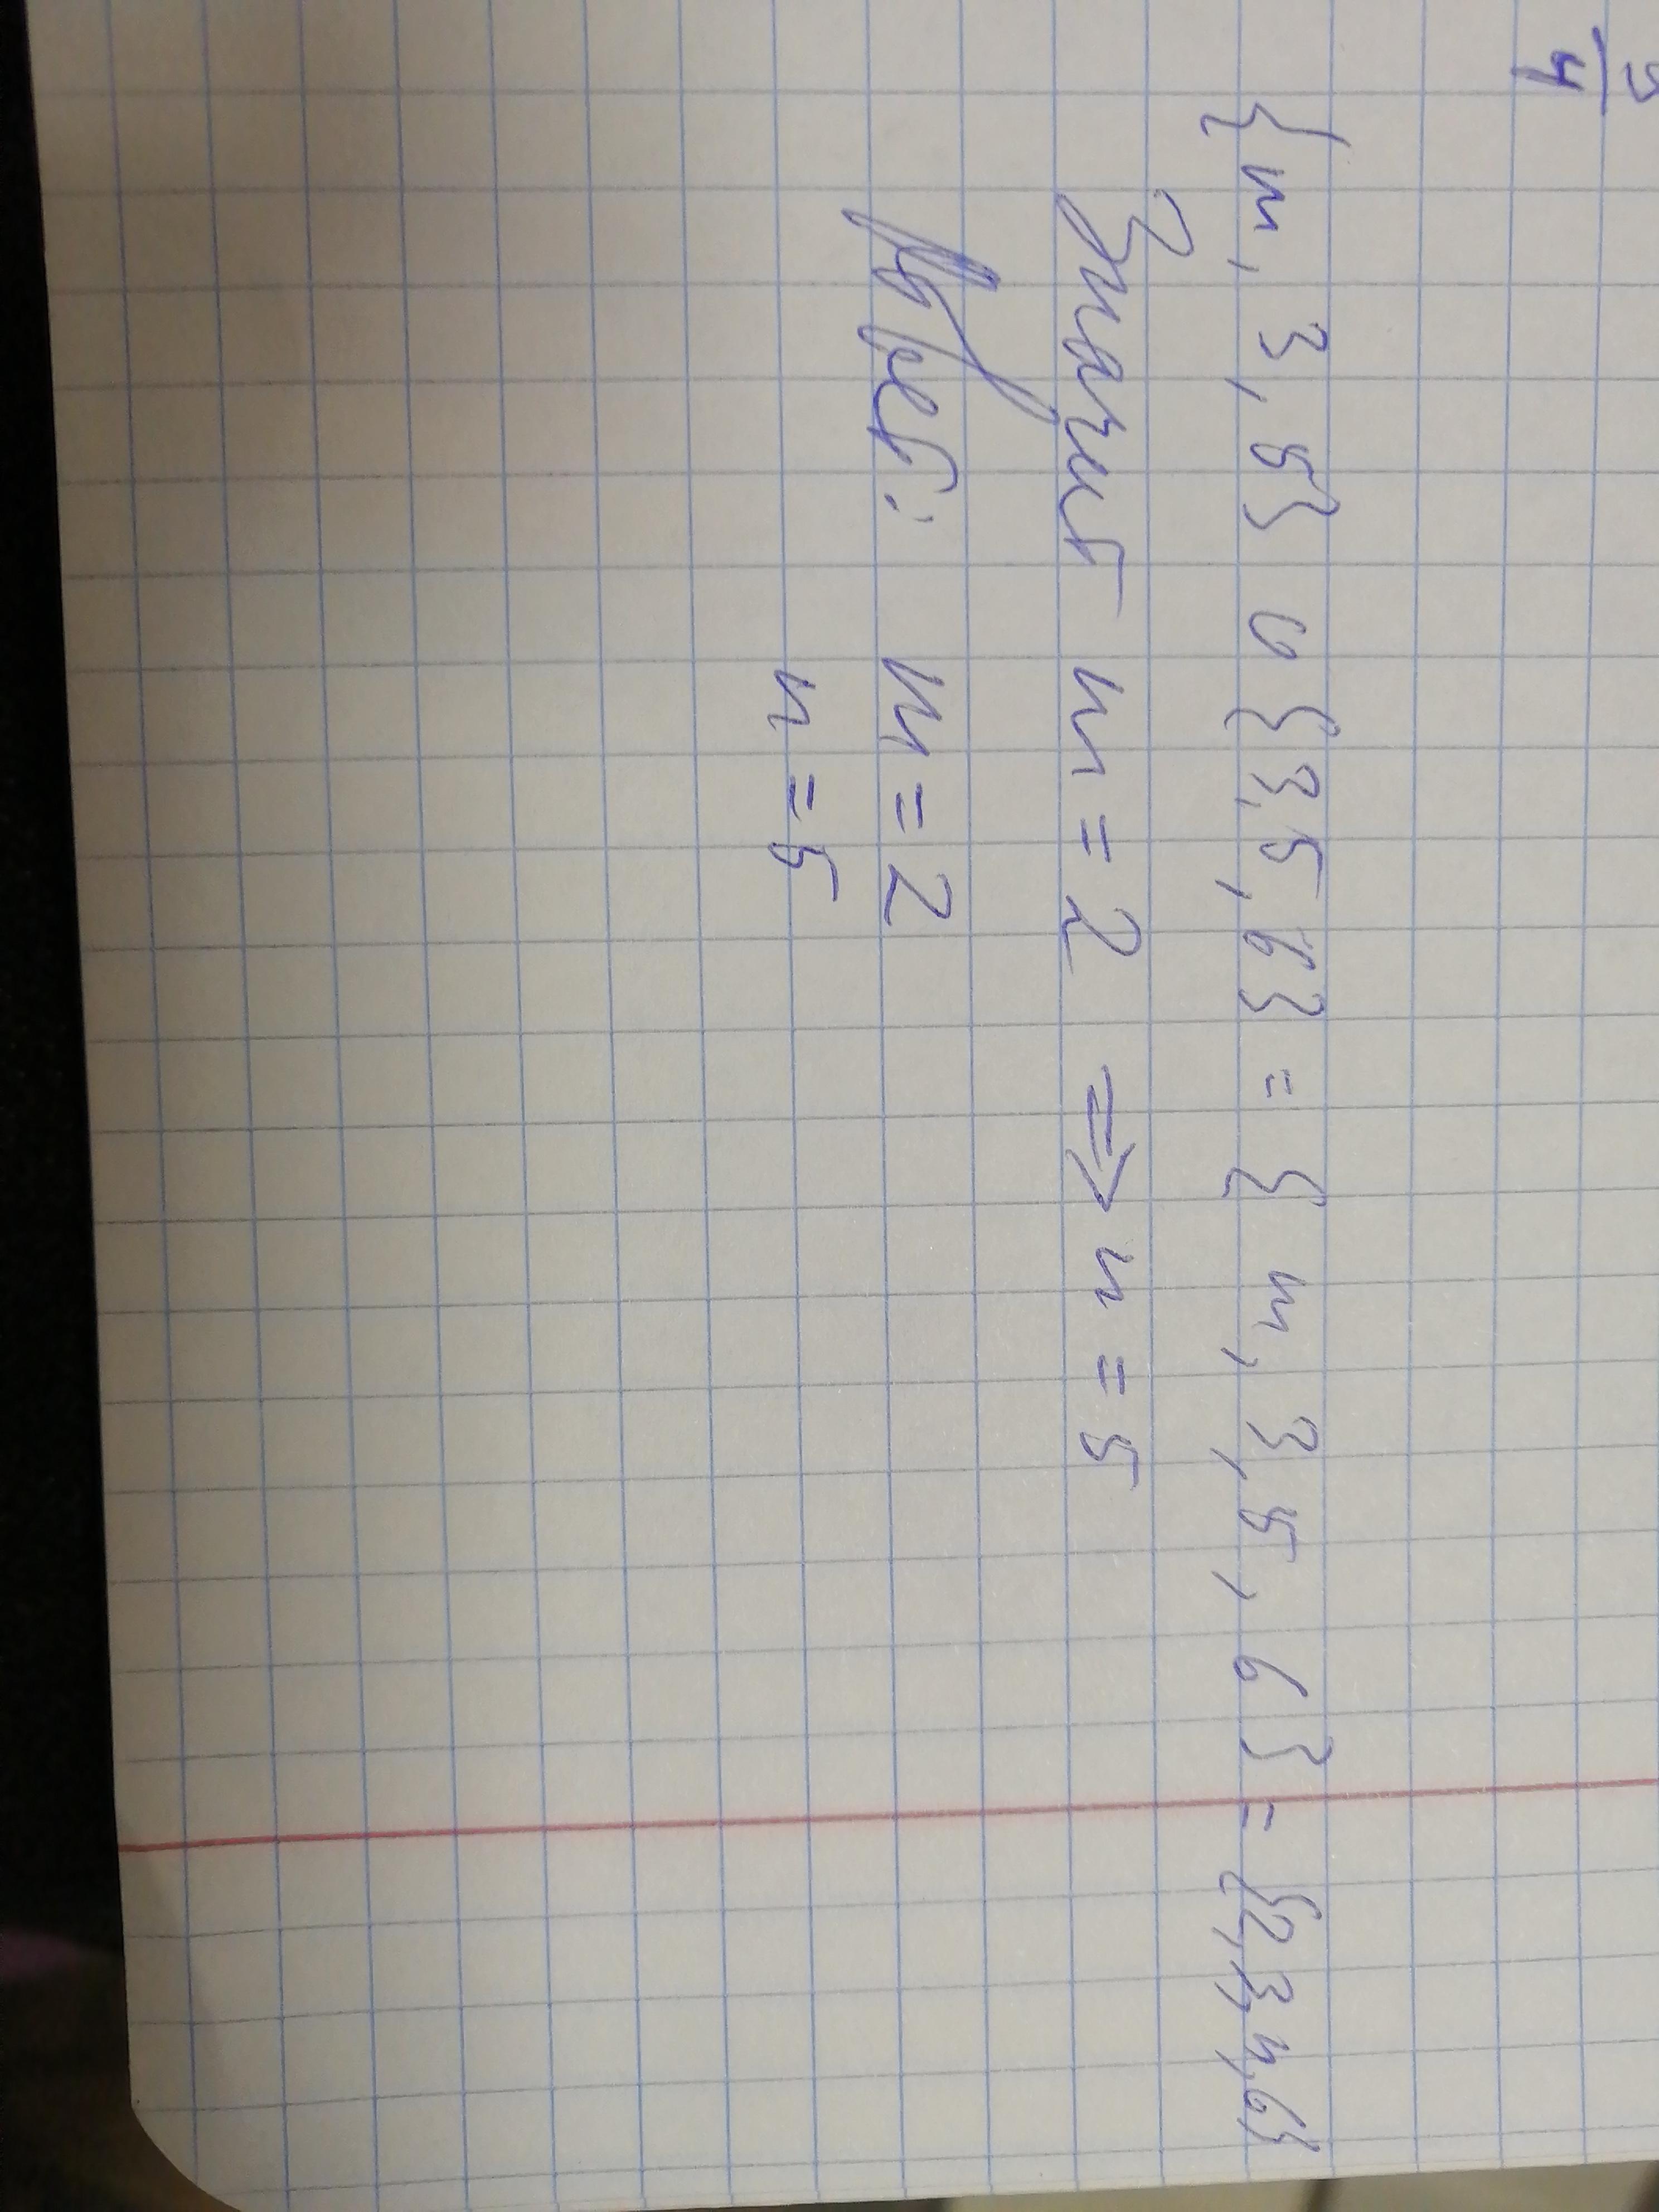 {m, 3, 5} ∪ {3, 5, 6} = {m, 3, 5, 6} = {2, 3, n, 6}
Значит m = 2 ⇒ n = 5
Ответ: m = 2
n = 5